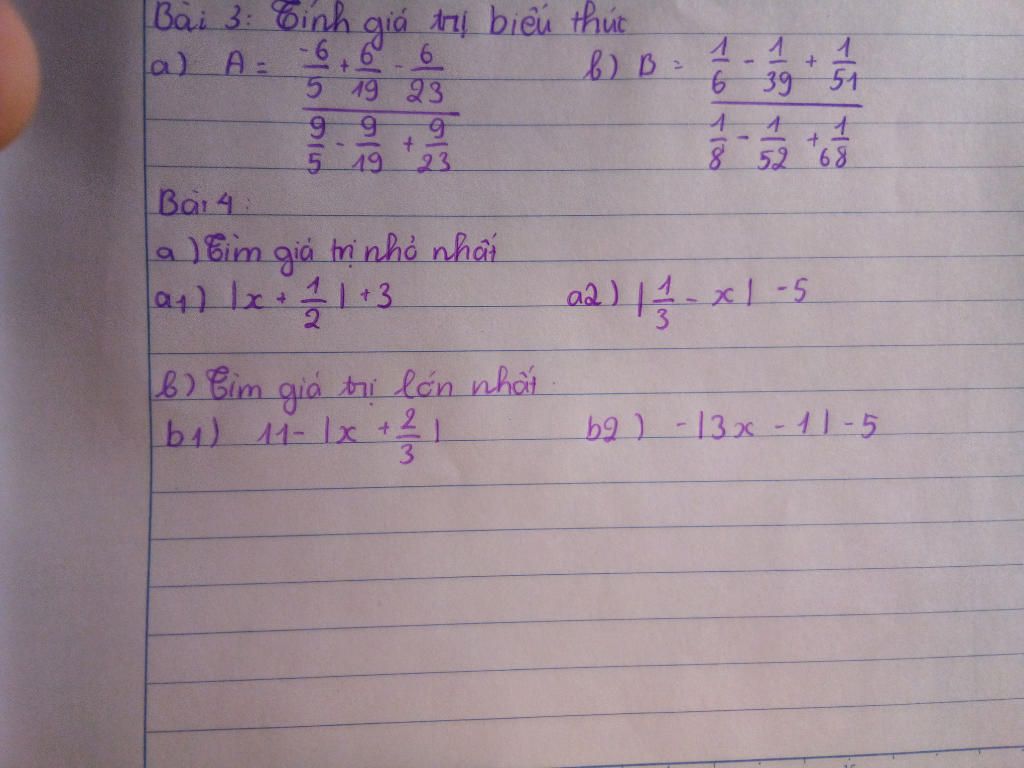 Bài 3: Tính giá trị biểu thức
a) A = (-6/5 + 6/19 - 6/23) / (9/5 - 9/19 + 9/23) b) B = (1/6 - 1/39 + 1/51) / (1/8 - 1/52 + 1/68)
Bài 4:
a) Tìm giá trị nhỏ nhất
a1) |x + 1/2| + 3 a2) |1/3 - x| - 5
b) Tìm giá trị lớn nhất
b1) 11 - |x + 2/3| b2) -|3x - 1| - 5